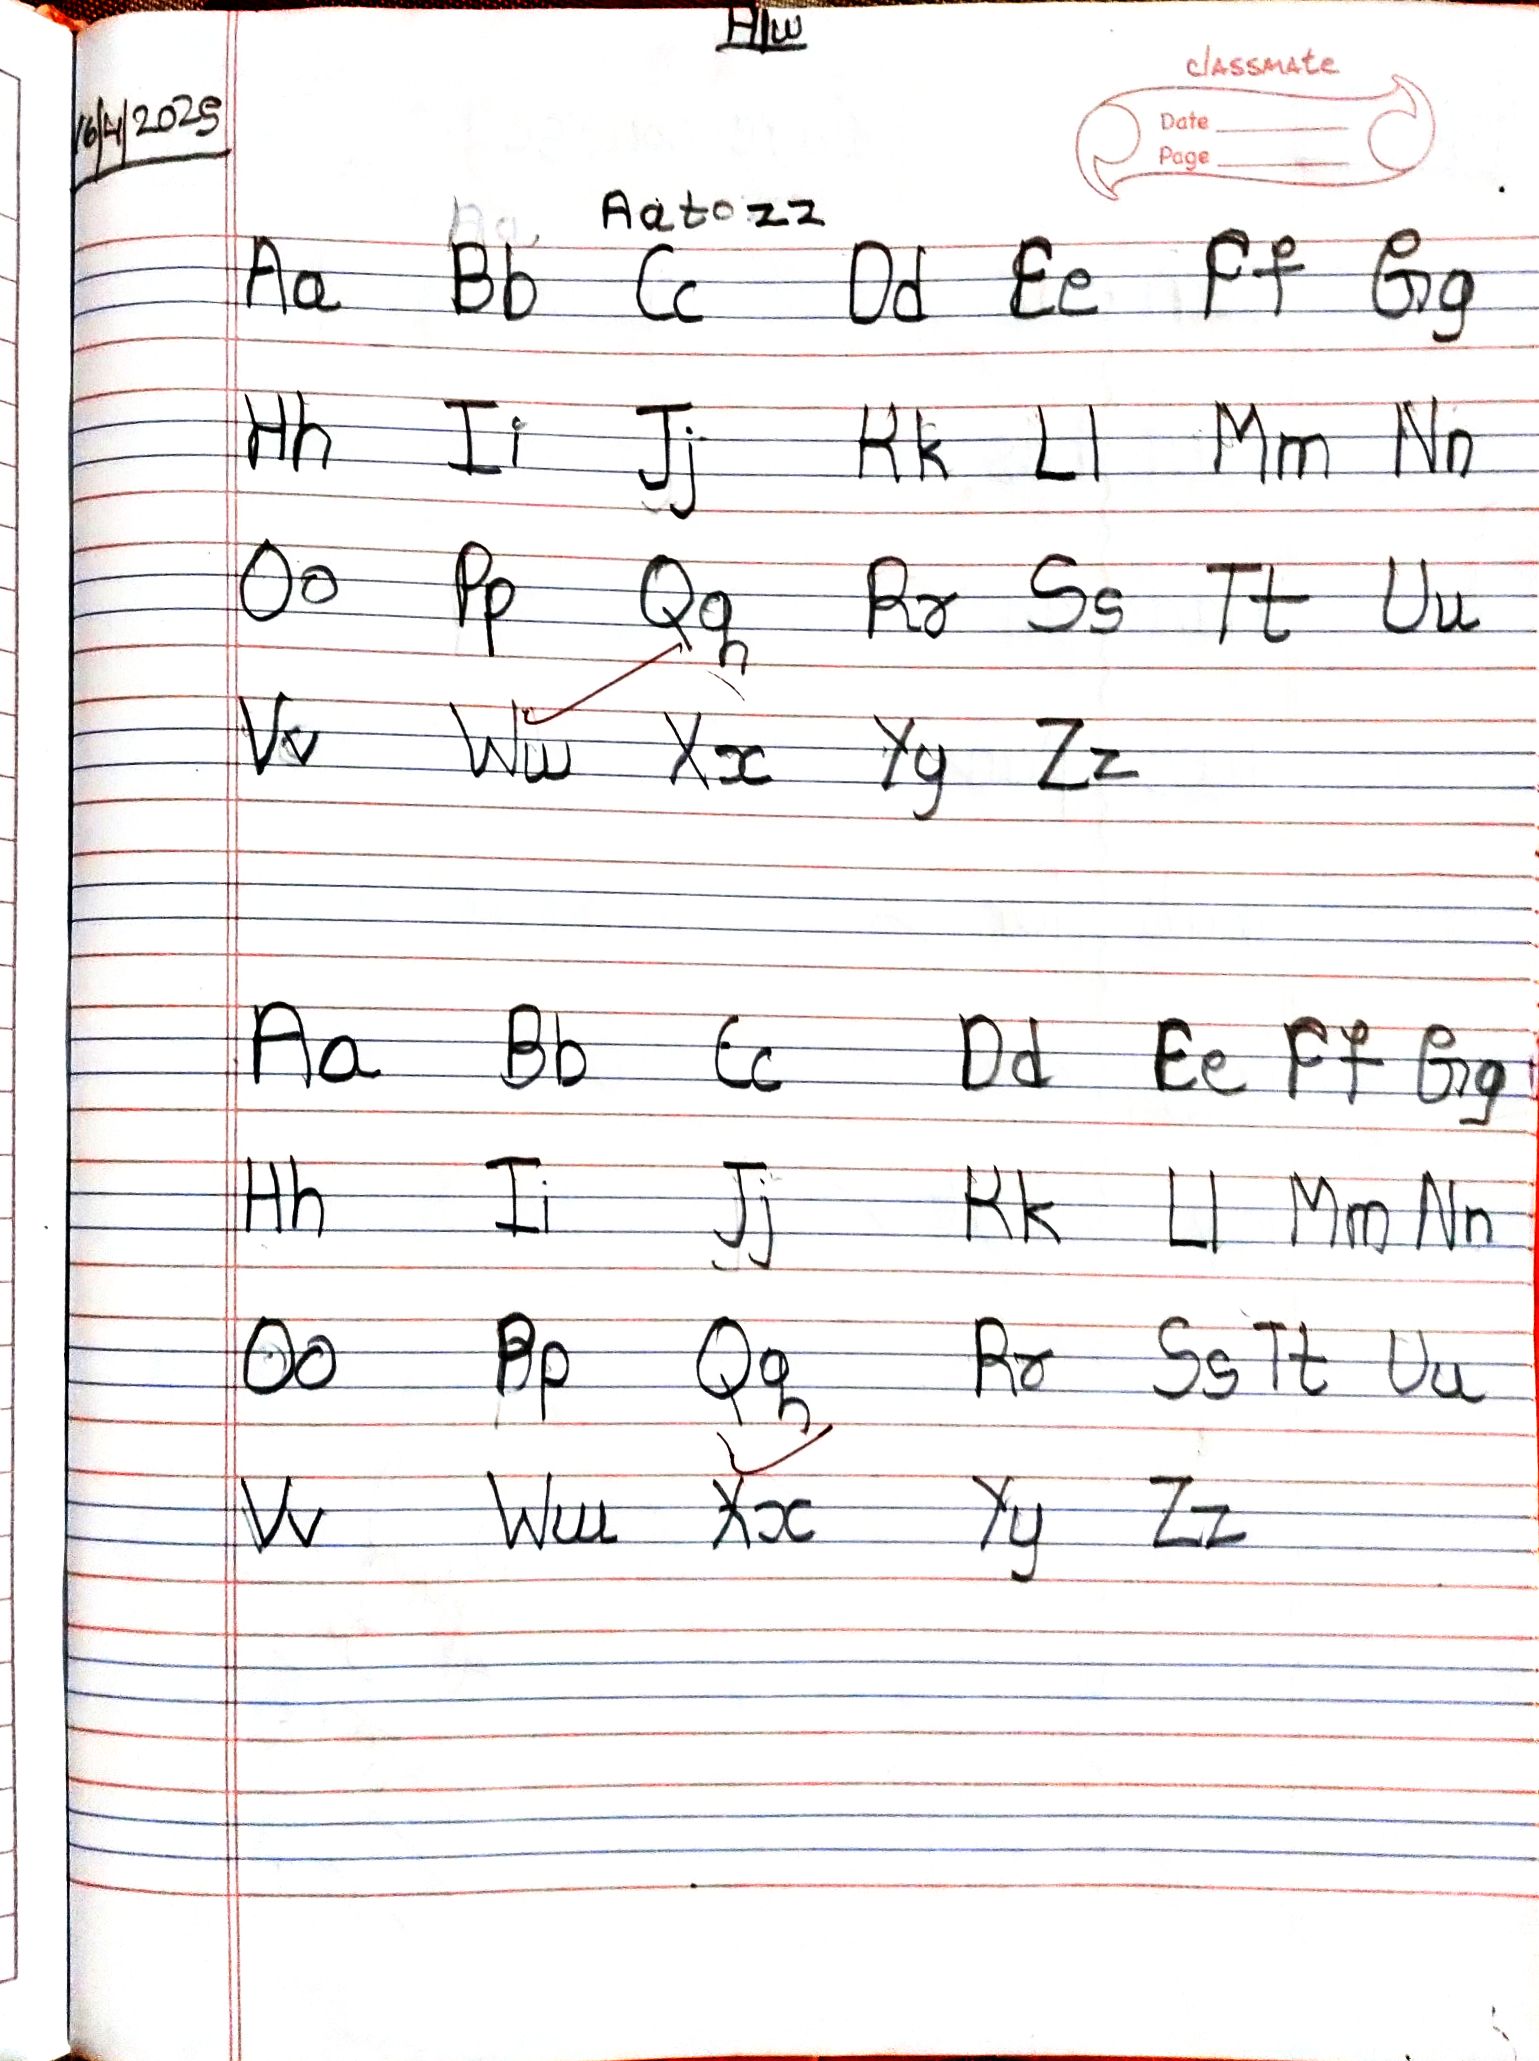 H/w
classmate
16/4/2025
Date
Page
Aa to zz
Aa Bb Cc Dd Ee Ff Gg
Hh Ii Jj Kk Ll Mm Nn
Oo Pp Qq Rr Ss Tt Uu
Vv Ww Xx Yy Zz
Aa Bb Cc Dd Ee Ff Gg
Hh Ii Jj Kk Ll Mm Nn
Oo Pp Qq Rr Ss Tt Uu
Vv Ww Xx Yy Zz